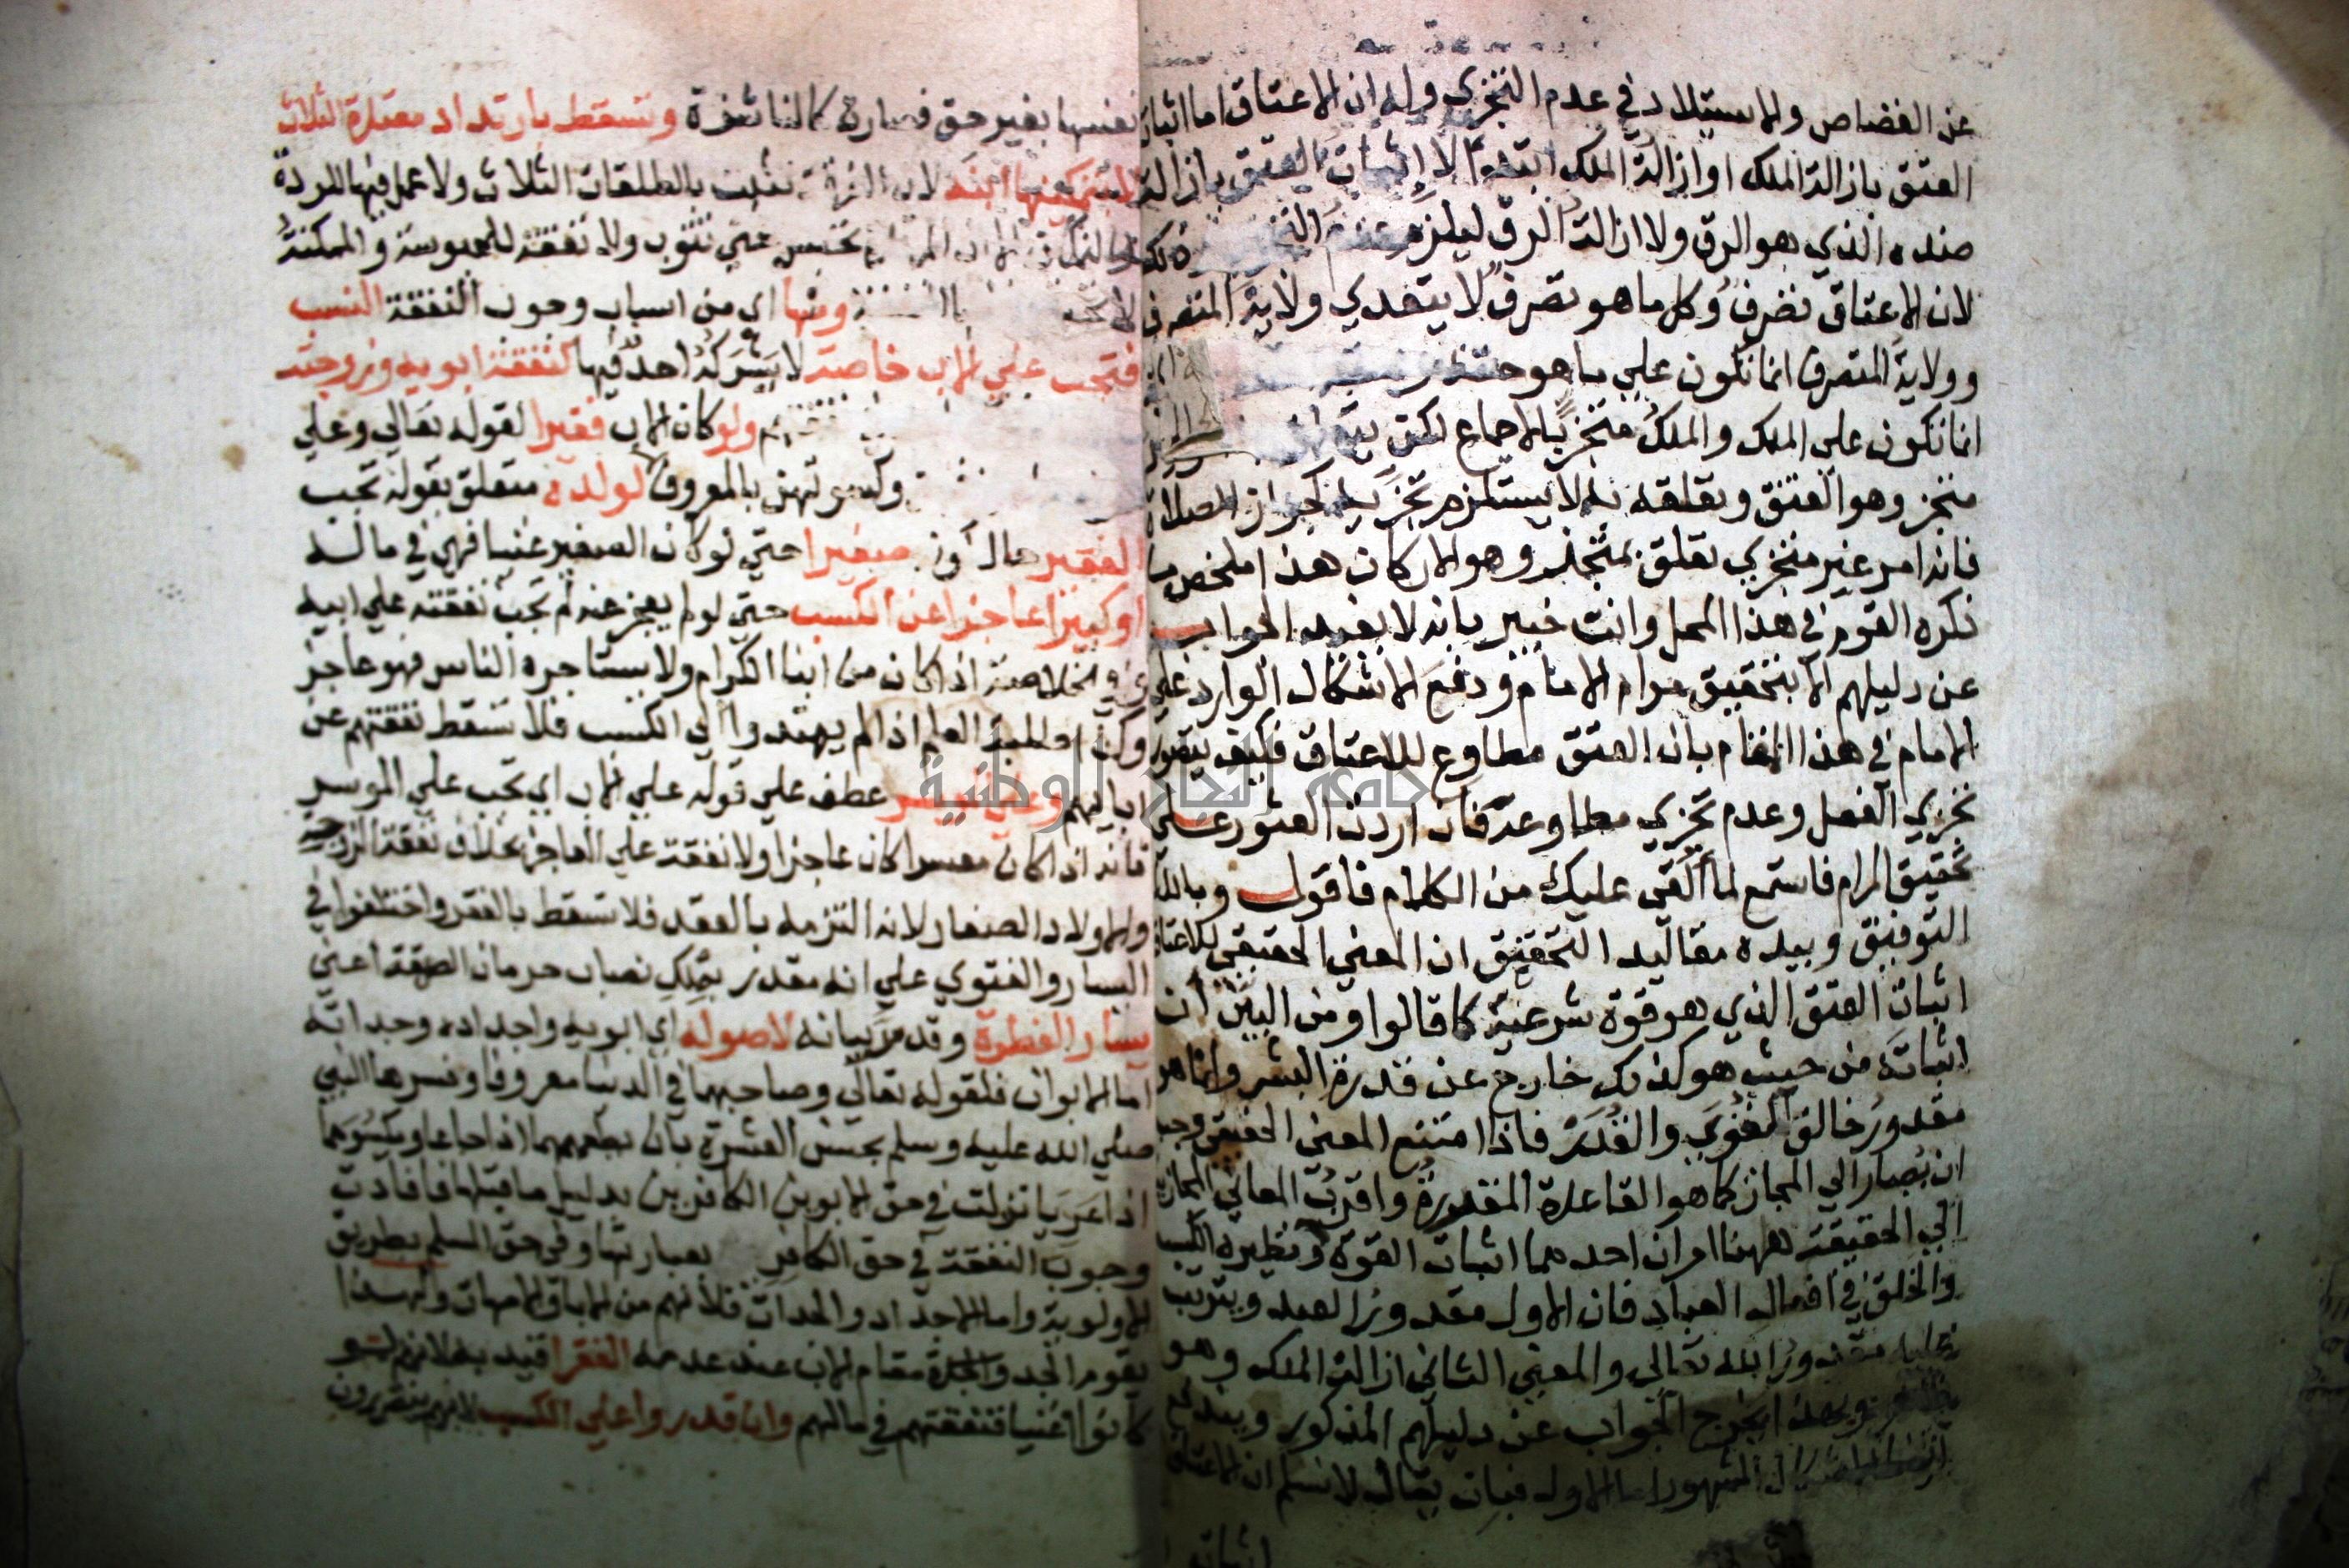 عن القصاص والاستيلاد في عدم التجزي وله ان الاعتاق اما اثبات
العتق بازالة الملك او ازالة الملك ابتداء لا اثبات العتق بازالة
ضده الذي هو الرق ولا ازالة الرق ليلزم عدم
لان الاعتاق تصرف وكل ما هو تصرف لا يتعدي ولاية المتصرف
وولاية المتصرف انما تكون علي ما هو حقه
انما تكون علي الملك والملك متجز بالاجماع لكن
متجز وهو العتق وتعلقه به لا يستلزم تجزيه كجواز الصلاة
فانه امر غير متجزي تعلق بمتجز وهو الاركان هذا ملخص ما
ذكره القوم في هذا المحل وانت خبير بانه لا يفيد الجواب
عن دليلهم الا بتحقيق مرام الامام ودفع الاشكال الوارد علي
الامام في هذا المقام بان العتق مطاوع للاعتاق فكيف يتصور
تجزي الفعل وعدم تجزي مطاوعه فان اردت العثور علي
تحقيق المرام فاستمع لما القي عليك من الكلام فاقول وبالله
التوفيق وبيده مقاليد التحقيق ان المعني الحقيقي للاعتاق
اثبات العتق الذي هو قوة شرعية كما قالوا ومن البين ان
اثباته من حيث هو كذلك خارج عن قدرة البشر وانما هو
مقدور خالق القوي والقدر فاذا امتنع المعني الحقيقي وجب
ان يصار الي المجاز كما هو القاعدة المقررة واقرب المعاني المجازية
الي الحقيقة ههنا امران احدهما اثبات القوة ونظيره الكسب
والخلق في افعال العباد فان الاول مقدور العبد ويترتب
عليه مقدور الله تعالي والمعني الثاني ازالة الملك وهو
وبهذا يخرج الجواب عن دليلهم المذكور ويندفع
المشهور اما الاول فبان يقال لا نسلم ان الاعتاق
اثبات
نفسها بغير حق فصارة كالناشزة وتسقط بارتداد معتدة الثلاث
لا بتمكينها ابنه لان الفرقة تثبت بالطلقات الثلاث ولا عمل فيها للردة
والتمكين الا ان المرتدة تحبس حتي تتوب ولا نفقة للمحبوسة والممكنة
لا تحبس ومنها اي من اسباب وجوب النفقة النسب
فتجب علي الاب خاصة لا يشركه احد فيها كنفقة ابويه وزوجته
ولو كان الاب فقيرا لقوله تعالي وعلي
وكسوتهن بالمعروف لولده متعلق بقوله تجب
الفقير حال كونه صغيرا حتي لو كان الصغير غنيا فهي في ماله
او كبيرا عاجزا عن الكسب حتي لو لم يعجز عنه لم تجب نفقته علي ابيه
وفي الخلاصة اذا كان من ابنا الكرام ولا يستاجره الناس فهو عاجز
وكذا طلبة العلم اذا لم يهتدوا الي الكسب فلا تسقط نفقتهم عن
ابائهم وعلي الموسر عطف علي قوله علي الاب اي تجب علي الموسر
فانه اذا كان معسرا كان عاجزا ولا نفقة علي العاجز بخلاف نفقة الزوجة
والاولاد الصغار لانه التزمه بالعقد فلا تسقط بالفقر واختلفوا في
اليسار والفتوي علي انه مقدر بتملك نصاب حرمان الصدقة اعني
يسار الفطرة وقد مر بيانه لاصوله اي ابويه واجداده وجداته
اما الابوان فلقوله تعالي وصاحبهما في الدنيا معروفا وفسرها النبي
صلي الله عليه وسلم بحسن العشرة بان يطعمهما اذا جاعا ويكسوهما
اذا عريا نزلت في حق الابوين الكافرين بدليل ما قبلها فافادت
وجوب النفقة في حق الكافر بعبارتها وفي حق المسلم بطريق
الاولوية واما الاجداد والجدات فلانهم من الابا والامهات ولهذا
يقوم الجد والجدة مقام الاب عند عدمه الفقرا قيد به لانهم لو
كانوا اغنيا فنفقتهم في مالهم وان قدروا علي الكسب لانهم يتضررون
جامعة النجاح الوطنية